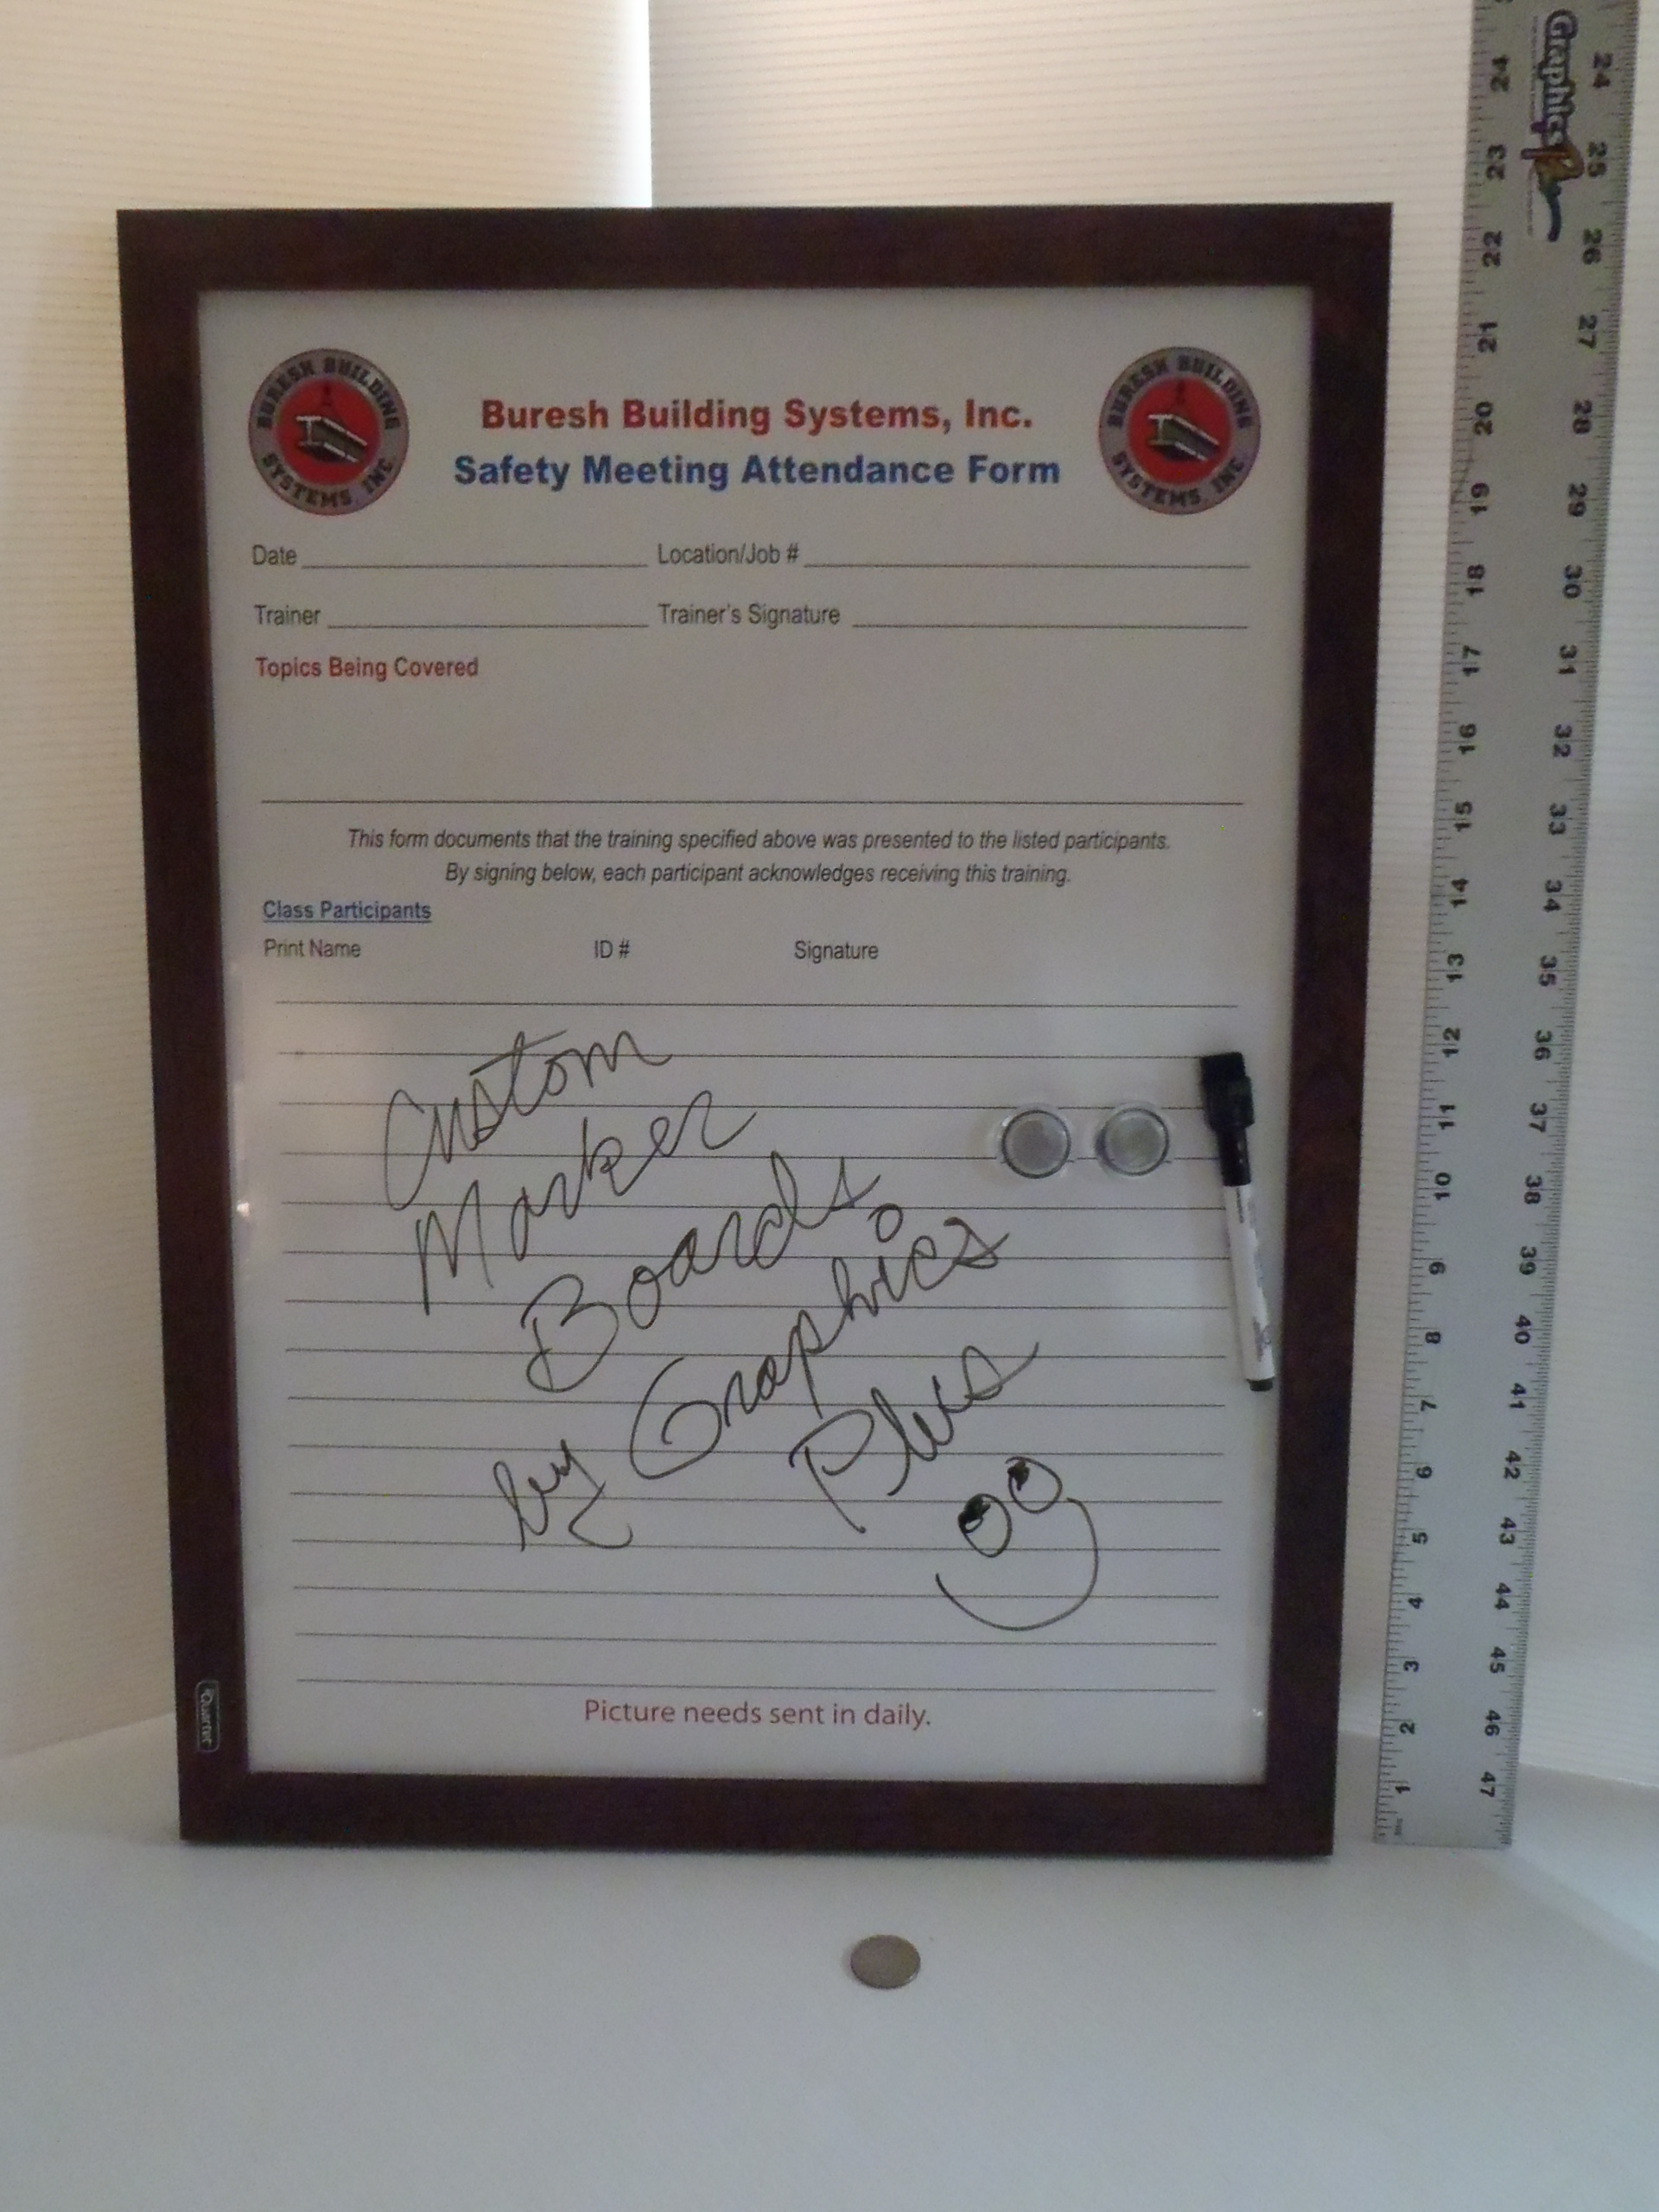 BURESH BUILDING SYSTEMS, INC.
Buresh Building Systems, Inc.
BURESH BUILDING SYSTEMS, INC.
Safety Meeting Attendance Form
Date Location/Job #
Trainer Trainer's Signature
Topics Being Covered
This form documents that the training specified above was presented to the listed participants.
By signing below, each participant acknowledges receiving this training.
Class Participants
Print Name ID # Signature
Custom
Marker
Boards
by Graphics
Plus
Picture needs sent in daily.
Quartet
Graphics
24 23 22 21 20 19 18 17 16 15 14 13 12 11 10 9 8 7 6 5 4 3 2 1
24 25 26 27 28 29 30 31 32 33 34 35 36 37 38 39 40 41 42 43 44 45 46 47